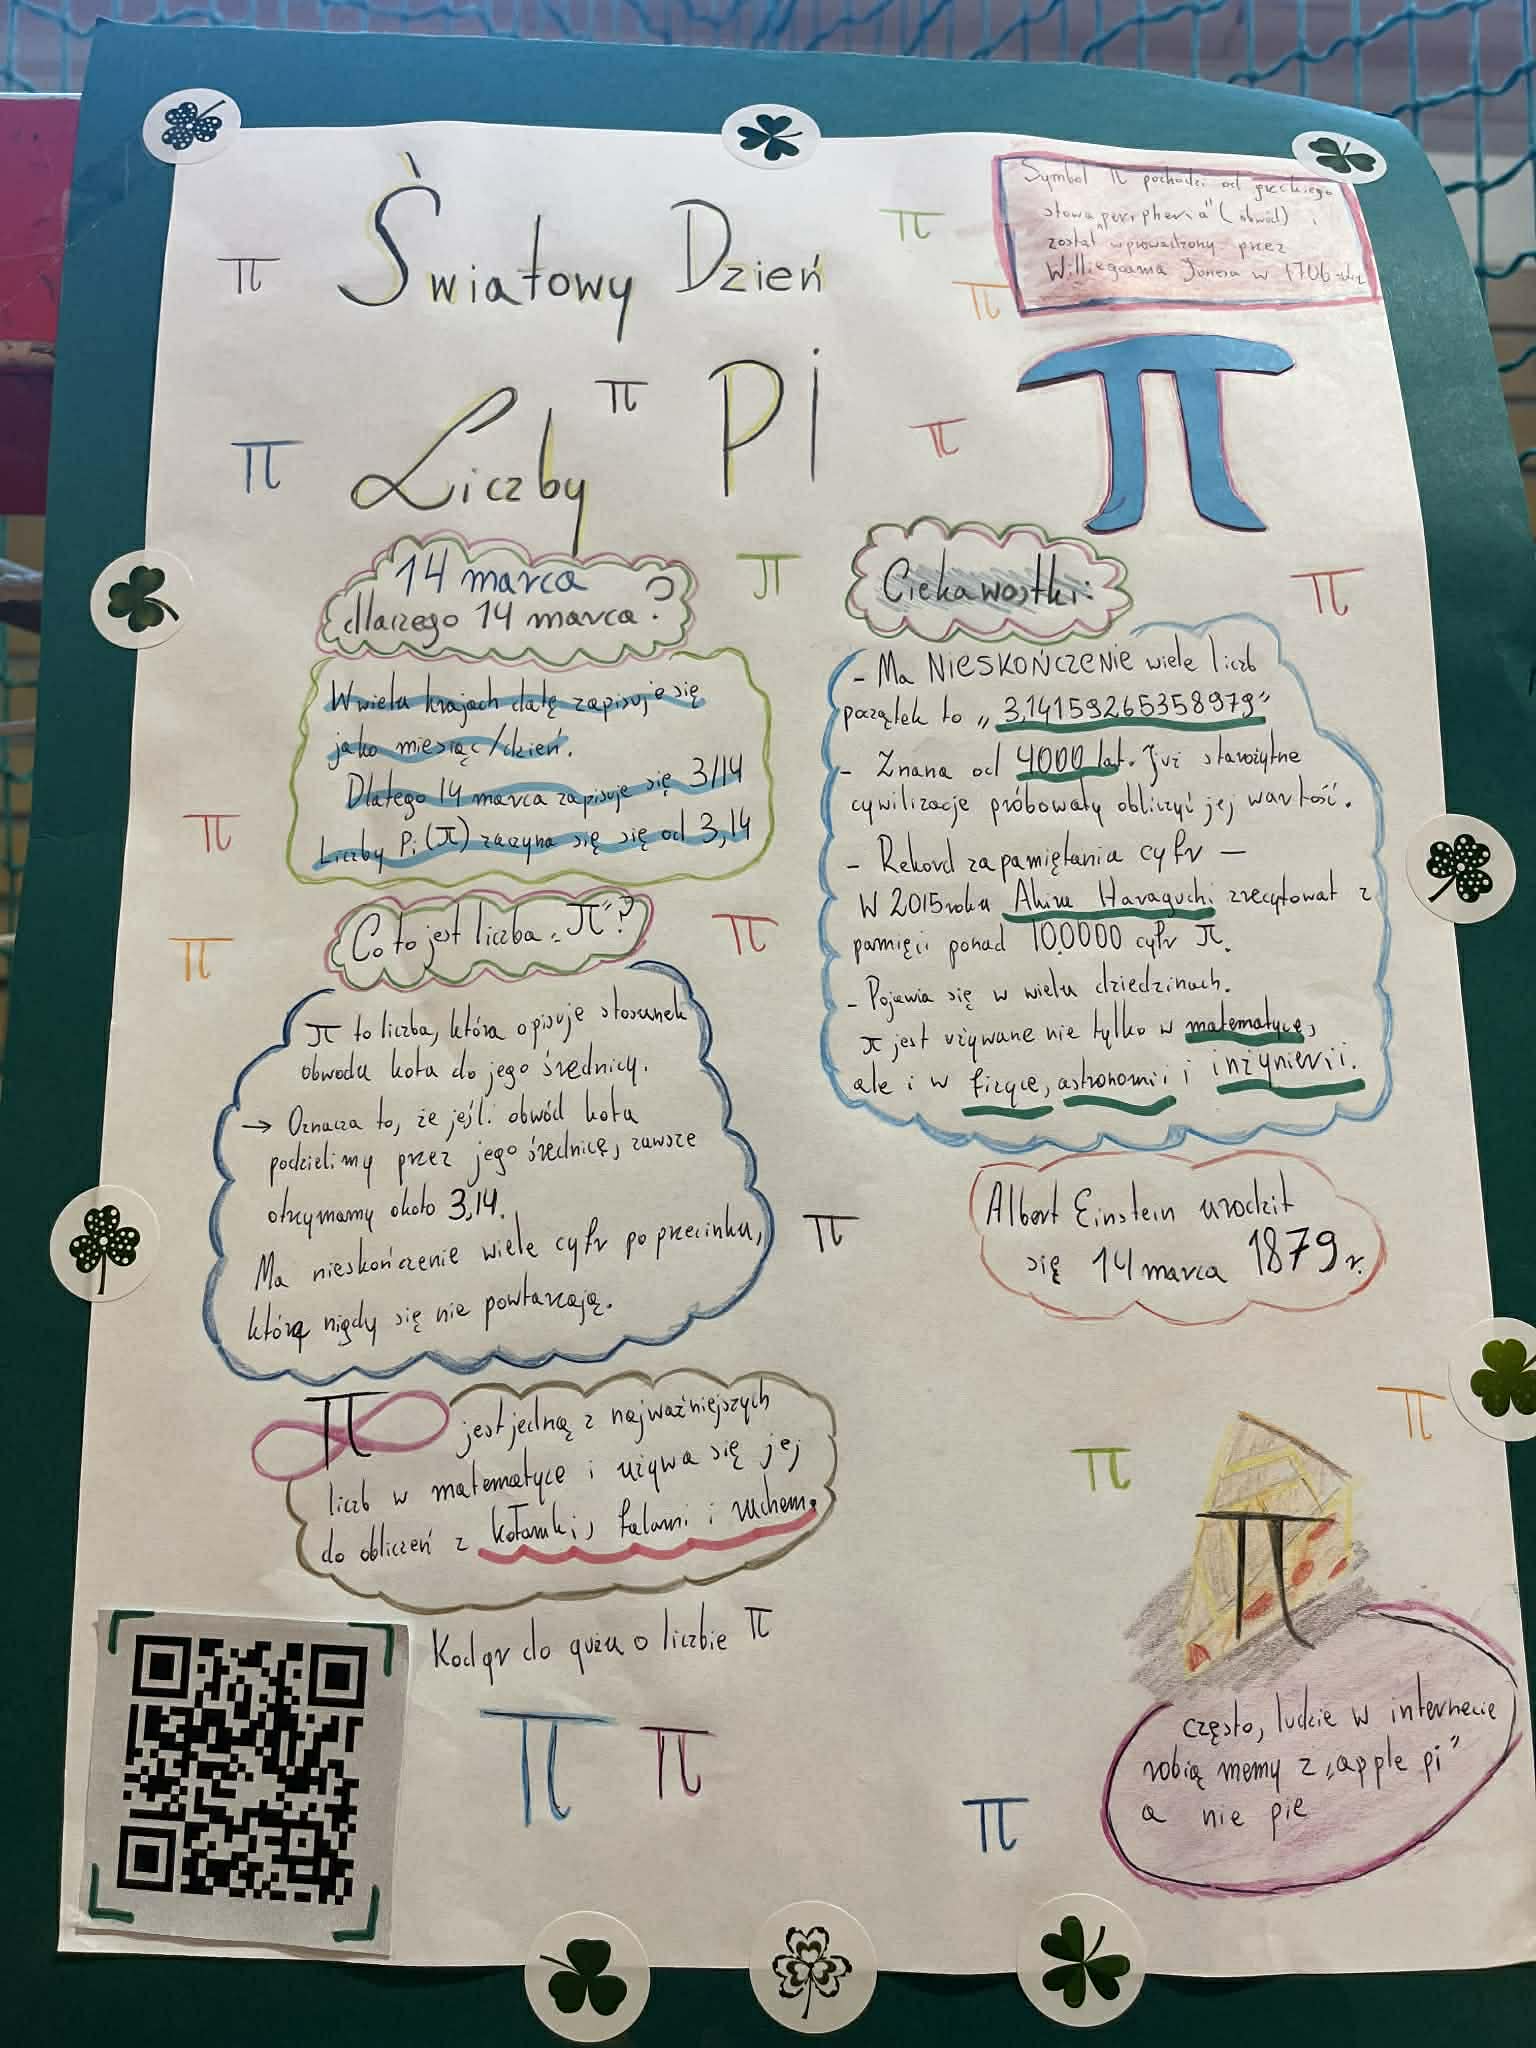 Światowy Dzień
Liczby Pi
Symbol π pochodzi od greckiego
słowa „peripheria” (obwód) i
został wprowadzony przez
Williegoama Jonesa w 1706
π
14 marca
dlaczego 14 marca?
W wielu krajach datę zapisuje się
jako miesiąc/dzień.
Dlatego 14 marca zapisuje się 3/14
Liczby Pi (π) zaczyna się się od 3,14
Co to jest liczba „π”?
π to liczba, która opisuje stosunek
obwodu koła do jego średnicy.
→ Oznacza to, że jeśli obwód koła
podzielimy przez jego średnicę, zawsze
otrzymamy około 3,14.
Ma nieskończenie wiele cyfr po przecinku,
którą nigdy się nie powtarzają.
π jest jedną z najważniejszych
liczb w matematyce i używa się jej
do obliczeń z kołamki, falami i ruchem.
Kod qr do quzu o liczbie π
π π
Ciekawostki:
- Ma NIESKOŃCZENIE wiele liczb
początek to „3,14159265358979”
- Znana od 4000 lat. Już starożytne
cywilizacje próbowały obliczyć jej wartość.
- Rekord zapamiętania cyfr —
W 2015 roku Akira Haraguchi zrecytował z
pamięci ponad 100000 cyfr π.
- Pojawia się w wielu dziedzinach.
π jest używane nie tylko w matematyce,
ale i w fizyce, astronomii i inżynierii.
Albert Einstein urodził
się 14 marca 1879 r.
π
często, ludzie w internecie
robią memy z „apple pi”
a nie pie